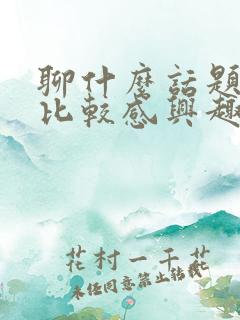 聊什麼話題
比較感興趣
花村一千花
未经同意禁止转载